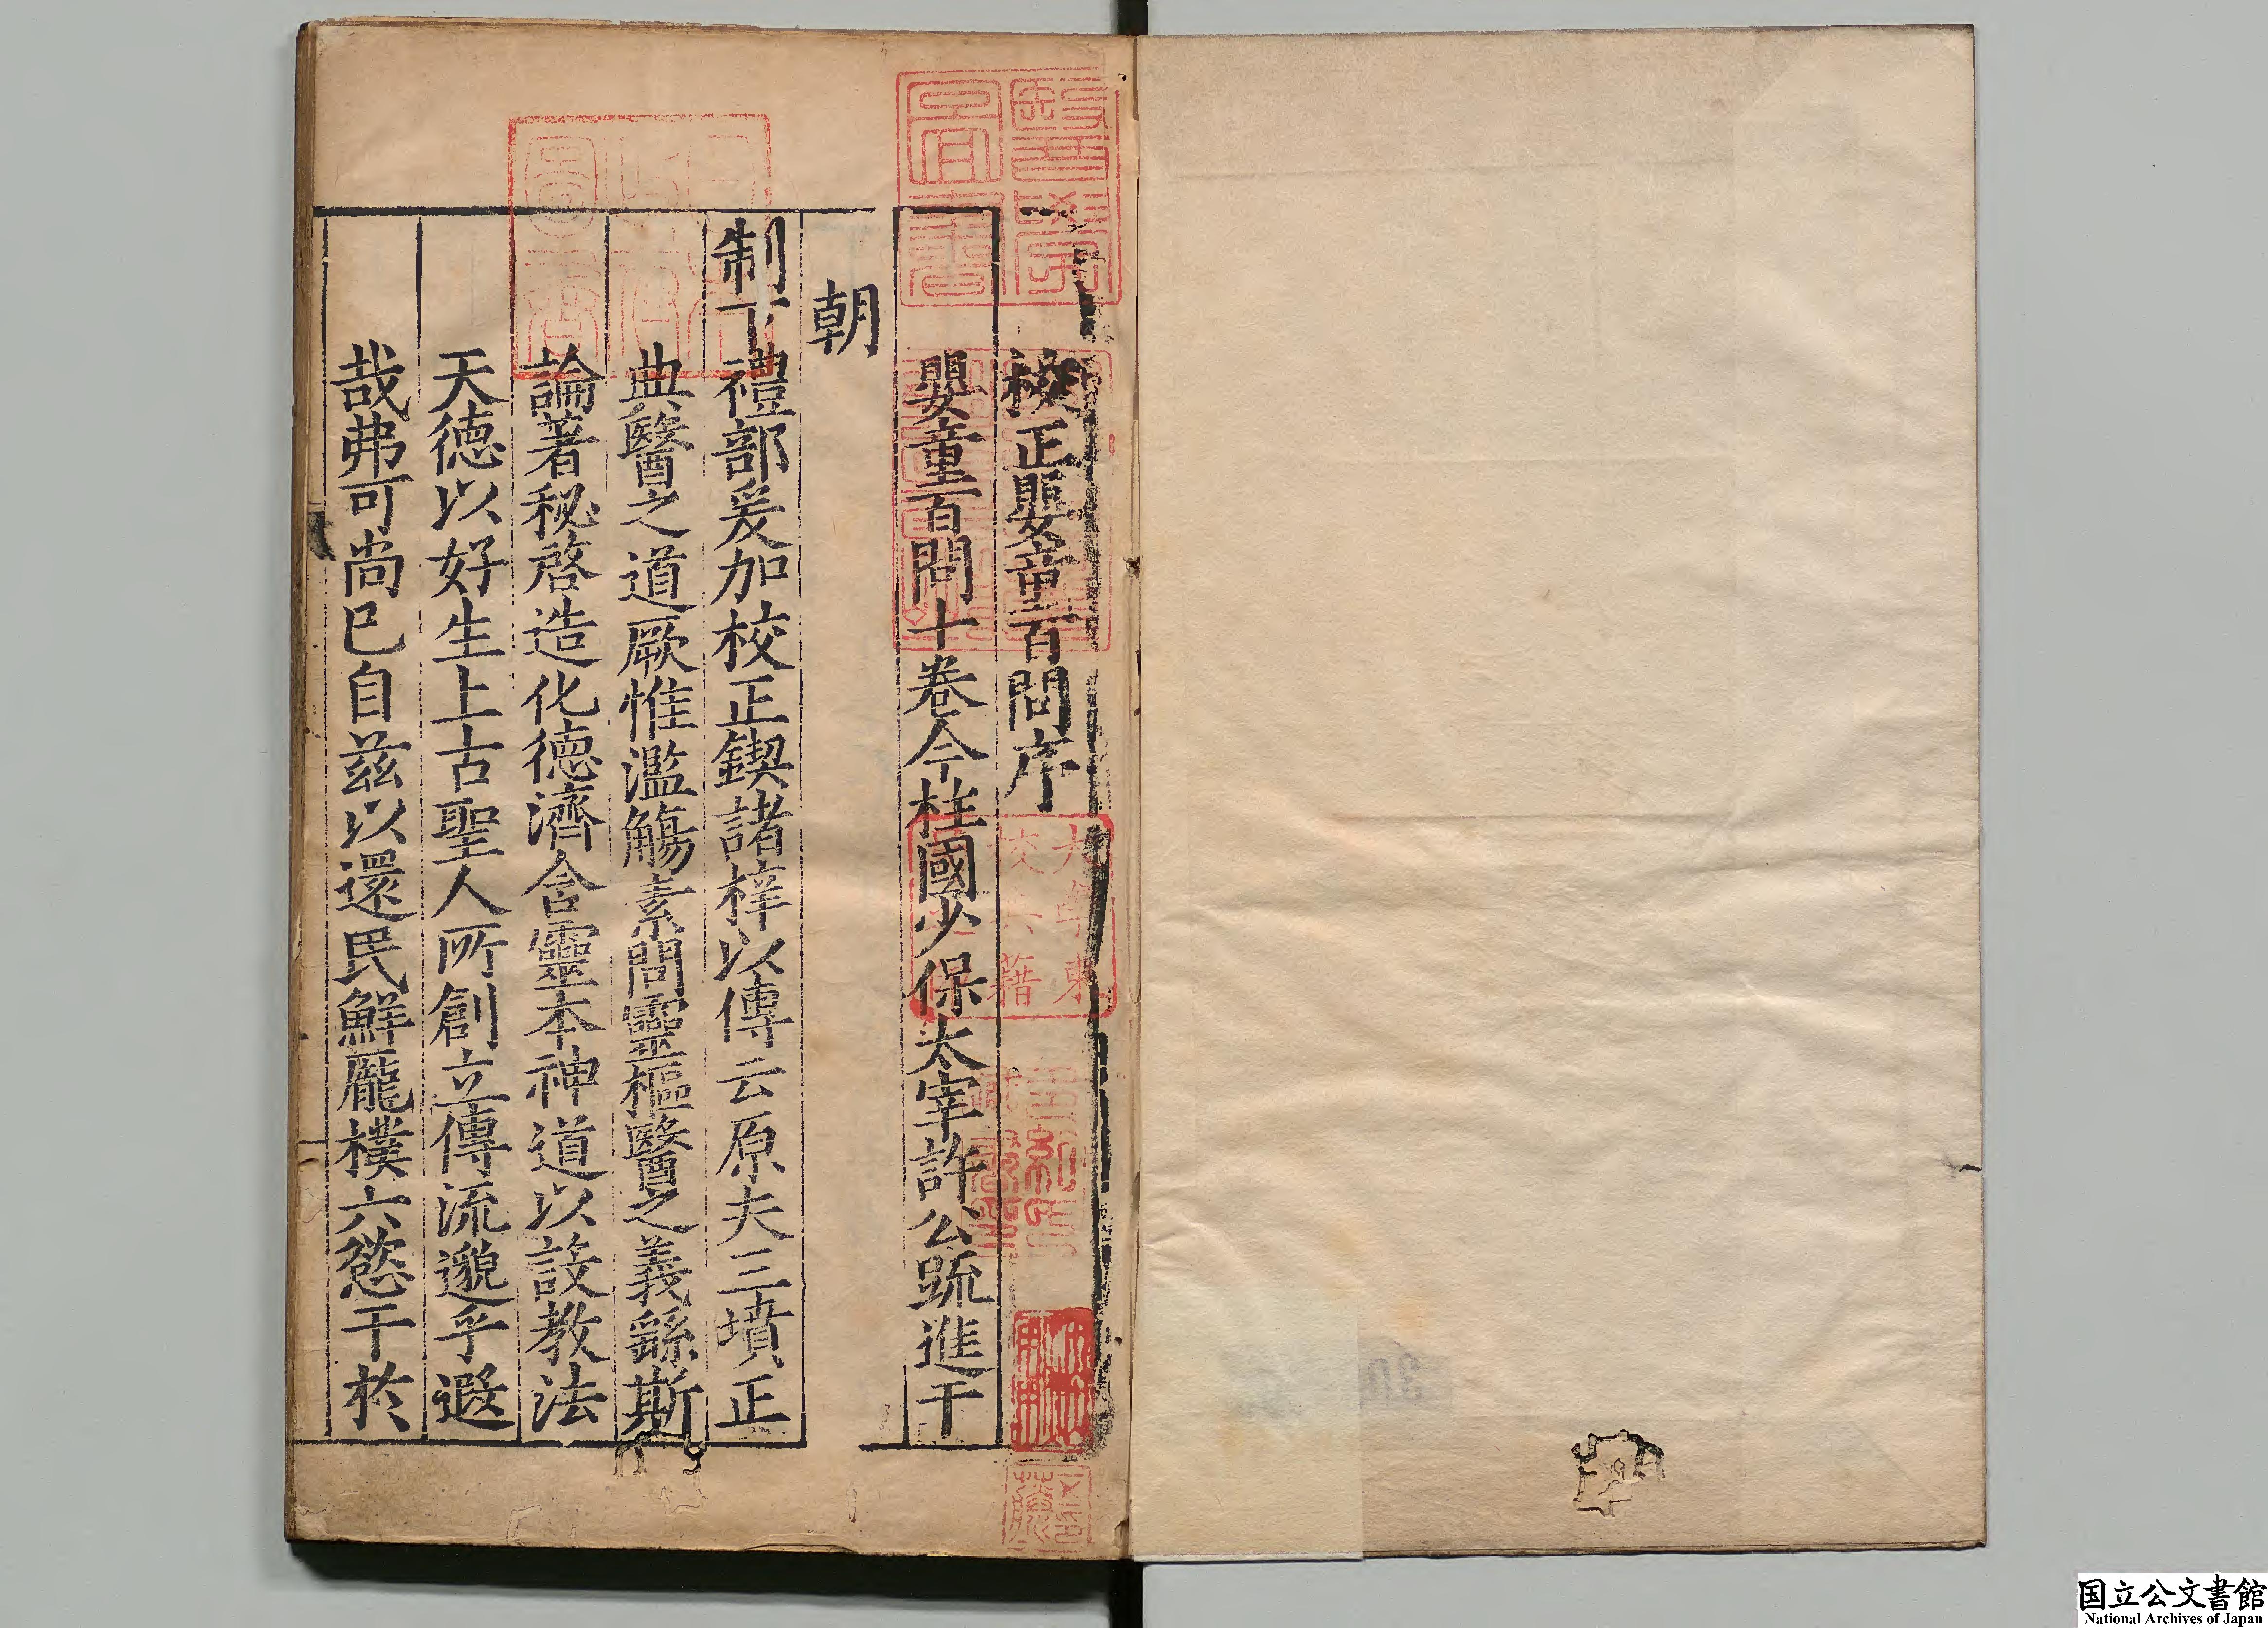 校正嬰童百問序
嬰童百問十卷今柱國少保太宰許公疏進于
朝
制下禮部爰加校正鍥諸梓以傳云原夫三墳正
典醫之道厥惟濫觴素問靈樞醫之義繇斯
論著秘啓造化德濟含靈本神道以設教法
天德以好生上古聖人所創立傳流邈乎遐
哉弗可尚已自兹以還民鮮龐樸六慾干於
醫學圖書
国立公文書館
National Archives of Japan